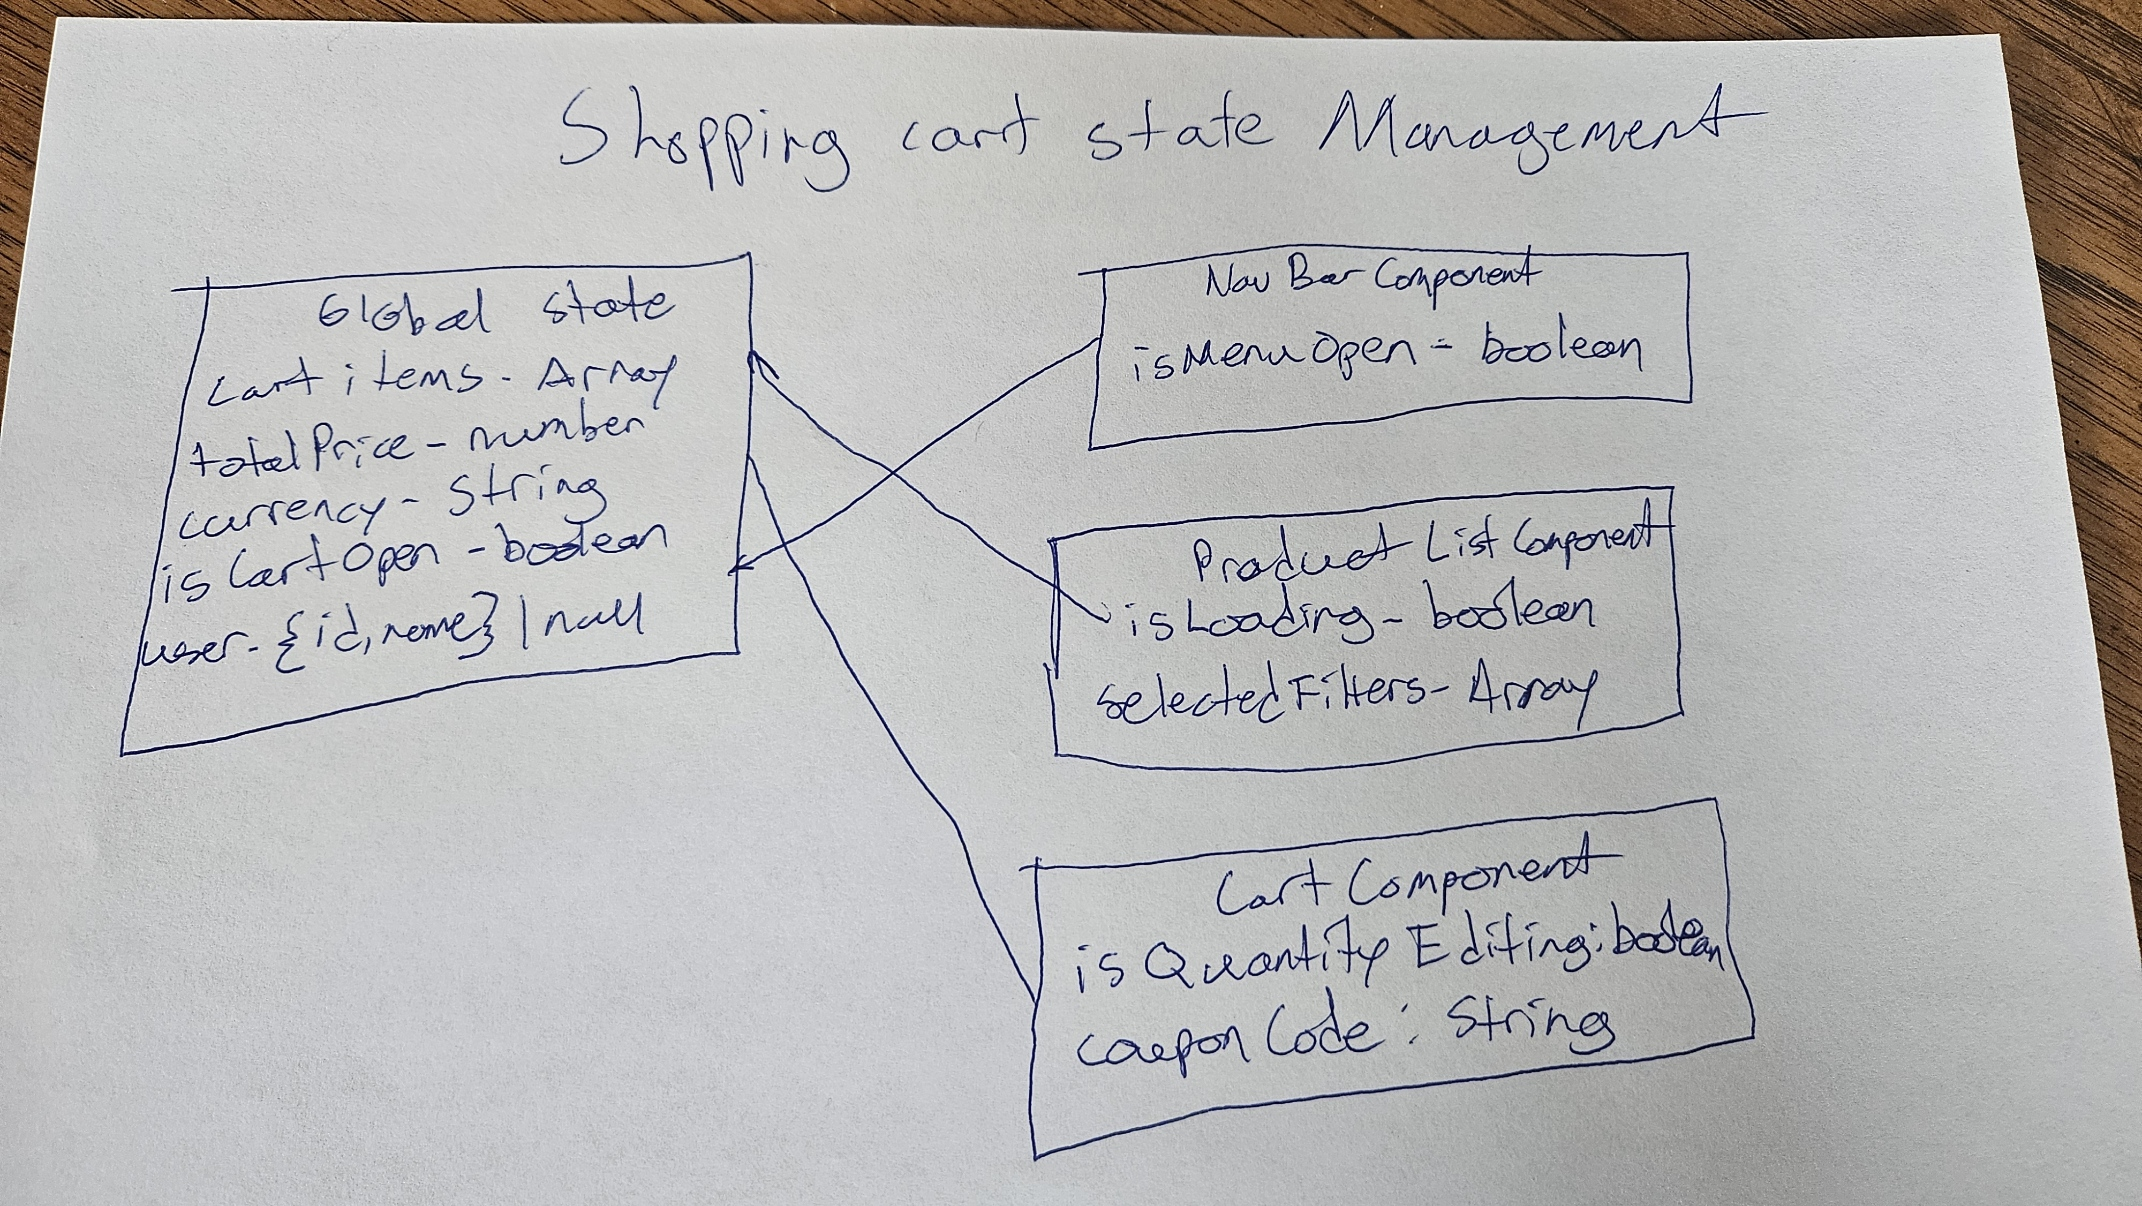 Shopping cart state Management
Global state
cart items - Array
totalPrice - number
currency - string
isCartOpen - boolean
user - {id, name} | null
Nav Bar Component
isMenuOpen - boolean
Product List Component
isLoading - boolean
selectedFilters - Array
Cart Component
isQuantityEditing: boolean
couponCode: string